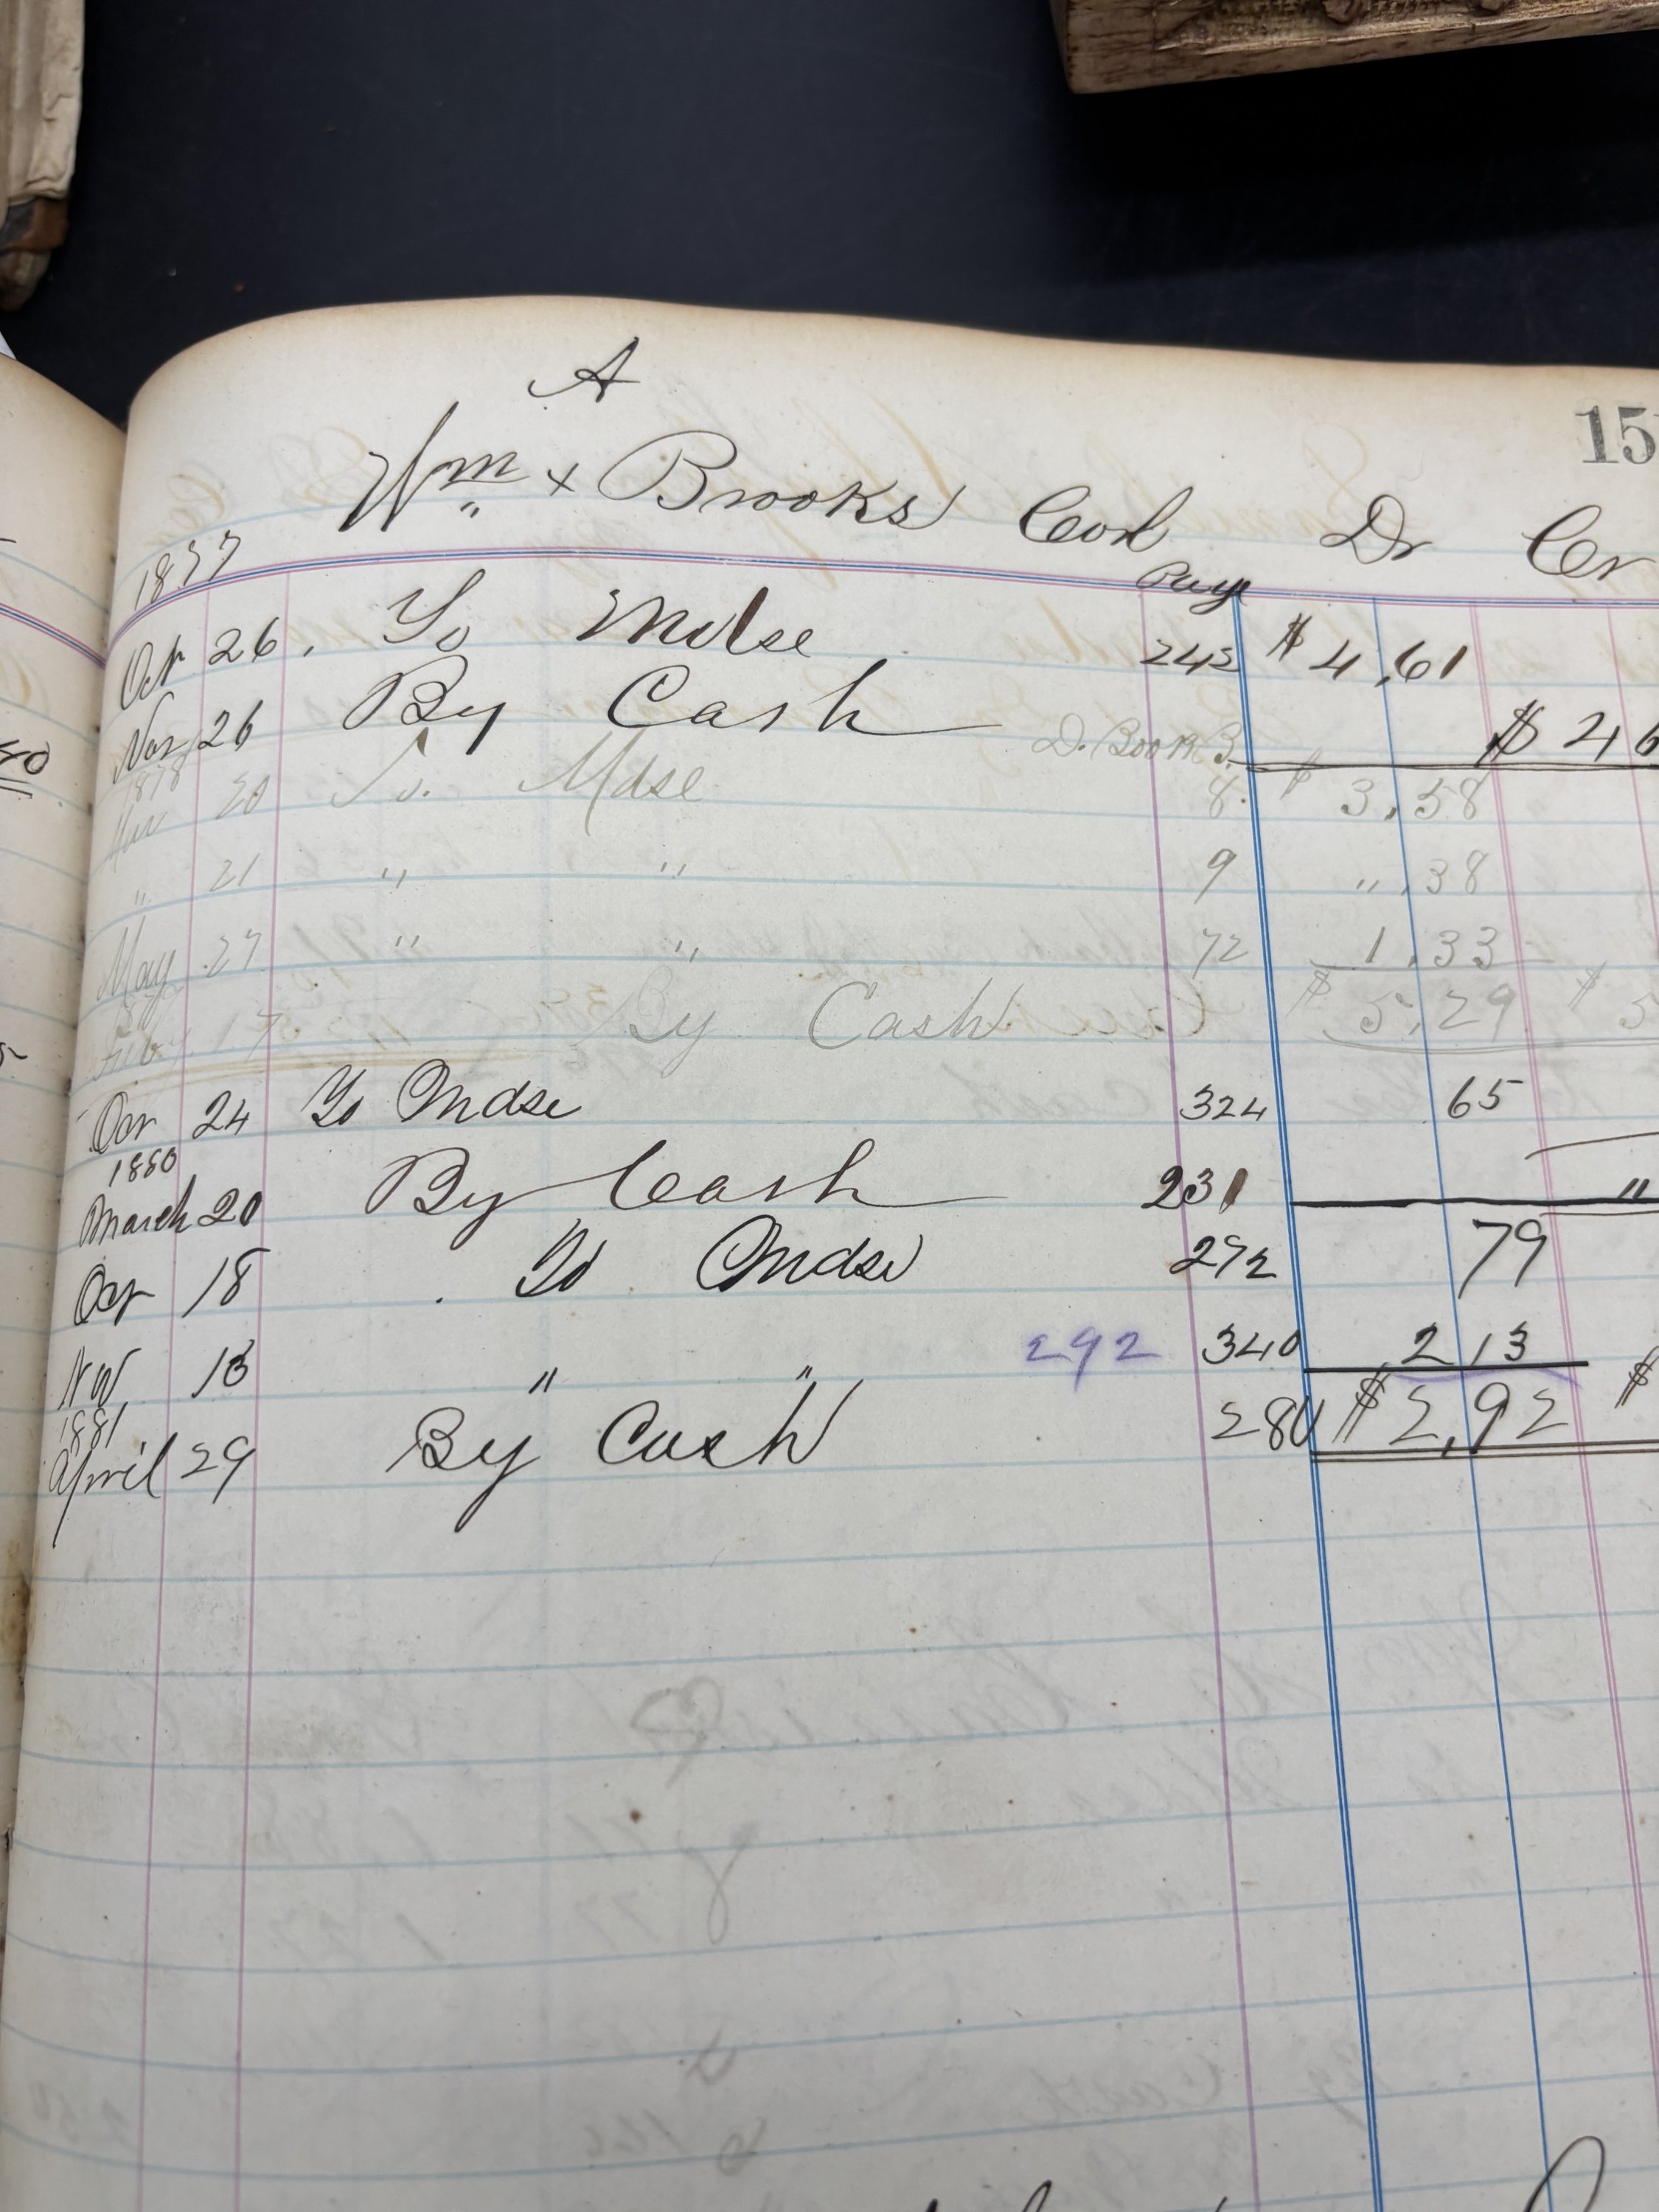 A
15
Wm x Brooks Cold Dr Cr
1877 Page
Oct 26 To Mdse 242 $ 4,61
Nov 26 By Cash $ 46
D. Book B.
1878
20 To Mdse 8 $ 3,58
" 21 " " 9 " ,38
May 27 " " 72 1,33
$ 5,29 $ 5
Feby 17 By Cash
Oct 24 To Mdse 324 65
1880
March 20 By Cash 231 "
Oct 18 To Mdse 272 79
Nov 13 " " 292 340 2,13
1881 $ 2,92 $
April 29 By Cash 280
40